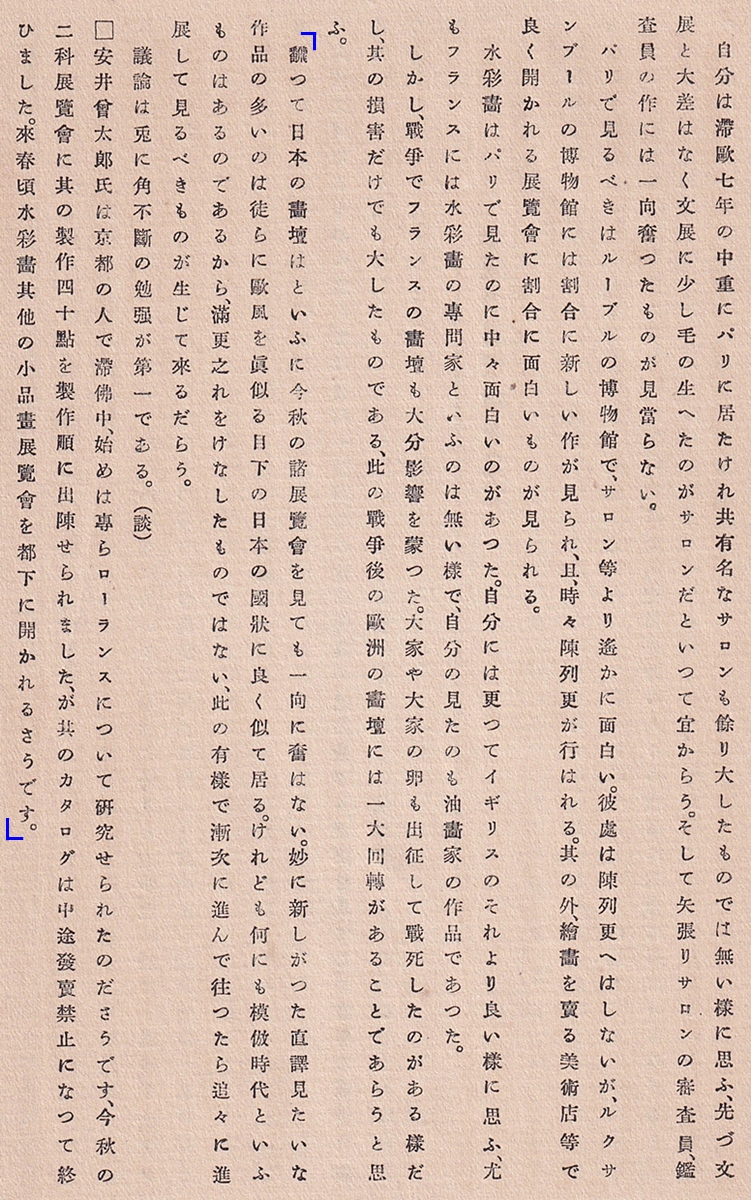 自分は滯歐七年の中重にパリに居たけれ共有名なサロンも餘り大したものでは無い樣に思ふ、先づ文
展と大差はなく文展に少し毛の生へたのがサロンだといつて宜からう。そして矢張りサロンの審査員、鑑
査員の作には一向奮つたものが見當らない。
パリで見るべきはルーブルの博物館で、サロン等より遙かに面白い。彼處は陳列更へはしないが、ルクサ
ンブールの博物館には割合に新しい作が見られ、且、時々陳列更が行はれる。其の外、繪畵を賣る美術店等で
良く開かれる展覽會に割合に面白いものが見られる。
水彩畵はパリで見たのに中々面白いのがあつた。自分には更つてイギリスのそれより良い樣に思ふ、尤
もフランスには水彩畵の專問家といふのは無い樣で、自分の見たのも油畵家の作品であつた。
しかし、戰爭でフランスの畵壇も大分影響を蒙つた。大家や大家の卵も出征して戰死したのがある樣だ
し、其の損害だけでも大したものである、此の戰爭後の歐洲の畵壇には一大回轉があることであらうと思
ふ。
飜つて日本の畵壇はといふに今秋の諸展覽會を見ても一向に奮はない。妙に新しがつた直譯見たいな
作品の多いのは徒らに歐風を眞似る目下の日本の國狀に良く似て居る。けれども何にも模倣時代といふ
ものはあるのであるから、滿更之れをけなしたものではない、此の有樣で漸次に進んで往つたら追々に進
展して見るべきものが生じて來るだらう。
議論は兎に角不斷の勉强が第一である。（談）
□安井曾太郞氏は京都の人で滯佛中、始めは專らローランスについて硏究せられたのださうです、今秋の
二科展覽會に其の製作四十點を製作順に出陳せられました、が其のカタログは中途發賣禁止になつて終
ひました。來春頃水彩畵其他の小品畫展覽會を都下に開かれるさうです。